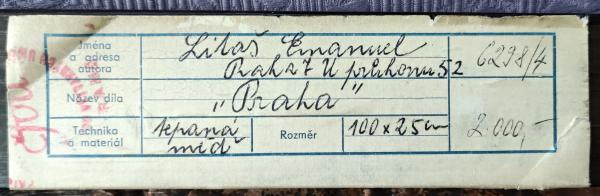 Jména a adresa autora
Litaš Emanuel
Praha 7 U průhonu 52
6298/4
Název díla
„Praha"
Technika a materiál
tepaná měď
Rozměr
100 x 25 cm
2.000,-